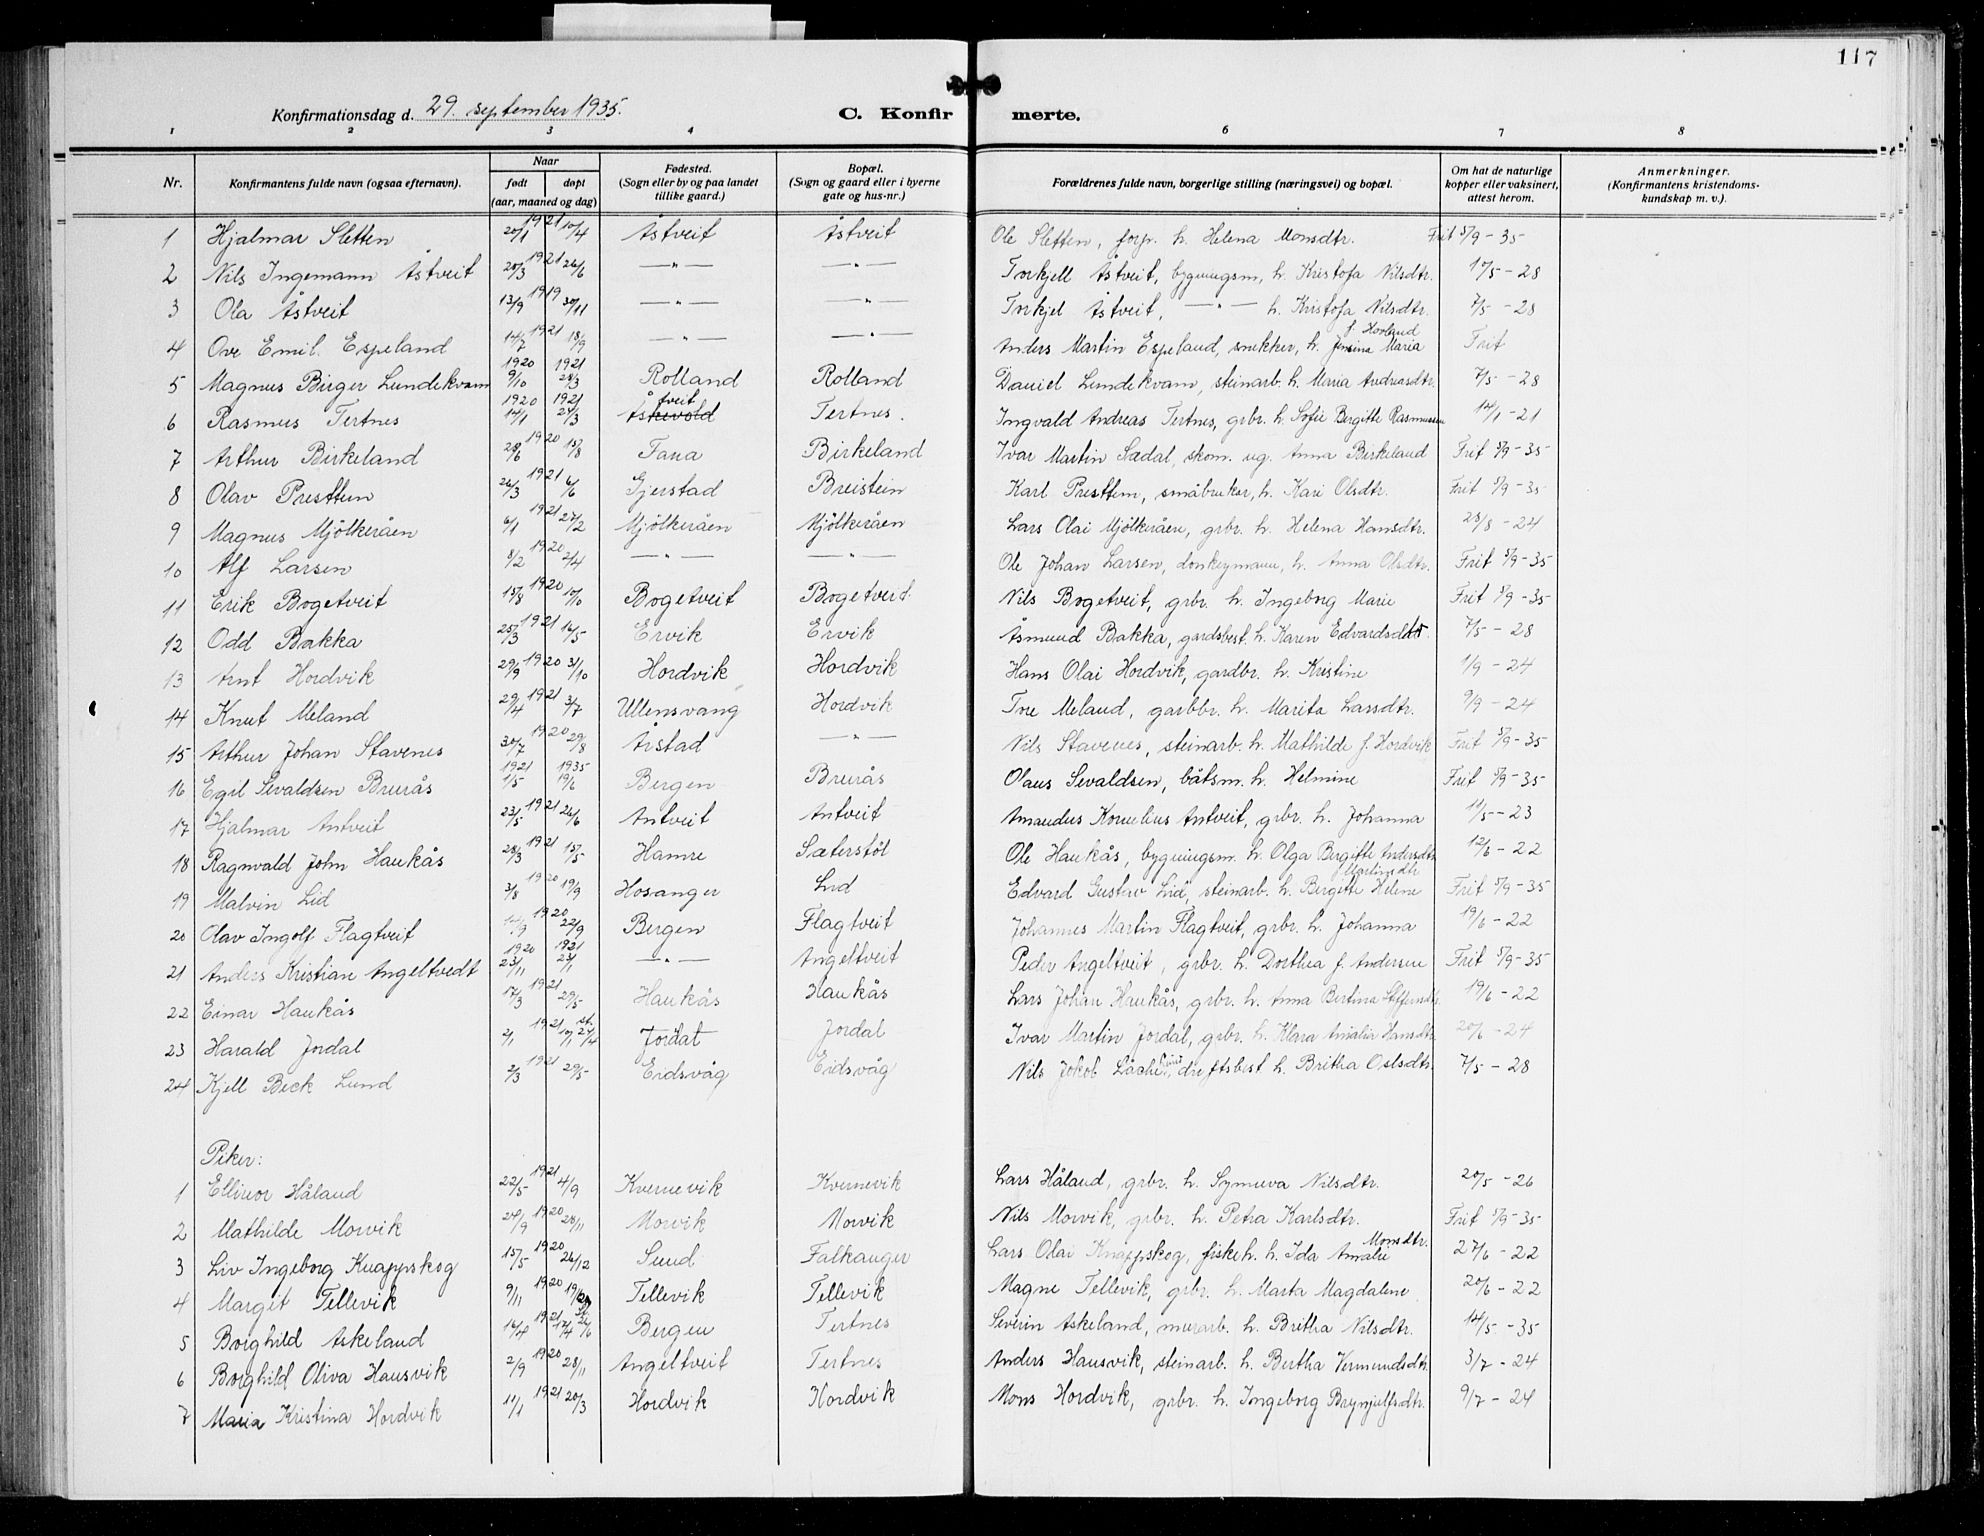 117
Konfirmationsdag d. 29. september 1935.
C. Konfirmerte.
1 2 3 4 6 7 8
Nr. | Konfirmantens fulde navn (ogsaa efternavn). | Naar født døpt (aar, maaned og dag) | Fødested. (Sogn eller by og paa landet tillike gaard.) | Bopæl. (Sogn og gaard eller i byerne gate og hus-nr.) | Forældrenes fulde navn, borgerlige stilling (næringsvei) og bopæl. | Om hat de naturlige kopper eller vaksinert, attest herom. | Anmerkninger. (Konfirmantens kristendomskundskap m. v.).
1 Hjalmar Sletten 20/1 1921 10/4 Åstveit Åstveit Ole Sletten, forp. h. Helena Monsdtr. Frit 5/9-35
2 Nils Ingemann Åstveit 20/3 1921 26/6 —"— —"— Torkjell Åstveit, bygningsm, h. Kristofa Nilsdtr. 15/5-28
3 Ola Åstveit 13/9 1919 30/11 —"— —"— Torkjel Åstveit, —"— h. Kristofa Nilsdtr. 7/5-28
4 Ove Emil Espeland 14/7 1921 18/9 —"— —"— Anders Martin Espeland, snekker, h. Jensina Maria f. Hovland Frit
5 Magnus Birger Lundekvam 1920 9/10 1921 28/3 Rolland Rolland Daniel Lundekvam, steinarb. h. Maria Andreasdtr. 7/5-28
6 Rasmus Tertnes 1920 14/1 1921 24/3 Åskevold Åtveit Tertnes. Ingvald Andreas Tertnes, grbr. h. Sofie Bergitte Rasmussen 14/1-21
7 Arthur Birkeland 28/6 1920 15/8 Fana Birkeland Ivar Martin Sædal, skom. ug. Anna Birkeland Frit 5/9-35
8 Olav Presttem 26/3 1921 6/6 Gjerstad Breistein Karl Presttem, småbruker, h. Kari Olsdtr. Frit 5/9-35
9 Magnus Mjölkeråen 6/1 1921 27/2 Mjölkeråen Mjölkeråen Lars Olai Mjölkeråen, grbr. h. Helena Hansdtr. 28/8-24
10 Alf Larsen 8/2 1920 2/4 —"— —"— Ole Johan Larsen, donkeymann, h. Anna Olsdtr. Frit 5/9-35
11 Erik Bogetveit 15/8 1920 10/10 Bogetveit Bogetveit Nils Bogetveit, grbr. h. Ingeborg Marie Frit 5/9-35
12 Odd Bakka 25/3 1921 16/5 Ervik Ervik Åsmund Bakka, gardsbest. h. Karen Edvardsdtr. 7/5-28
13 Arnt Hordvik 29/9 1920 31/10 Hordvik Hordvik Hans Olai Hordvik, gardbr. h. Kristine 1/9-24
14 Knut Meland 29/4 1921 3/7 Ullensvang Hordvik Tore Meland, garbbr. h. Marita Larsdtr. 9/9-24
15 Arthur Johan Stavenes 30/7 1920 29/8 Årstad —"— Nils Stavenes, steinarb. h. Mathilde f. Hordvik Frit 5/9-35
16 Egil Sevaldsen Brurås 1921 1/5 1935 19/6 Bergen Brurås Olaus Sevaldsen, båtsm. h. Helmine Frit 5/9-35
17 Hjalmar Antveit 23/5 1921 26/6 Antveit Antveit Amandus Kornelius Antveit, grbr. h. Johanna 11/5-23
18 Ragnvald John Haukås 28/3 1921 15/5 Hamre Sæterstöl Ole Haukås, bygningsm. h. Olga Bergitte Andersdtr 12/6-22
19 Malvin Lid 3/8 1920 19/9 Hosanger Lid Edvard Gustav Lid, steinarb. h. Bergitte Helene Martinsdtr Frit 5/9-35
20 Olav Ingolf Flagtveit 1920 22/9 Bergen Flagtveit Johannes Martin Flagtveit, grbr. h. Johanna 19/6-22
21 Anders Kristian Angeltvedt 1920 23/11 1921 23/1 —"— Angeltveit Peder Angeltveit, grbr. h. Dorthea f. Andersen Frit 5/9-35
22 Einar Haukås 17/3 1921 29/5 Haukås Haukås Lars Johan Haukås, grbr. h. Anna Bertina 19/6-22
23 Harald Jordal 2/1 1921 10/1 st. 27/4 Jordal Jordal Ivar Martin Jordal, grbr. h. Klara Amalia Hansdtr. 20/6-24
24 Kjell Beck Lund 2/3 1921 29/5 Eidsvåg Eidsvåg Nils Jokob driftsbest h. Britha Oslsdtr. 7/5-28
Piker:
1 Ellinor Håland 22/5 1921 4/9 Kvernevik Kvernevik Lars Håland, grbr. h. Synnøva Nilsdtr. 20/5-26
2 Mathilde Morvik 24/9 1920 28/11 Morvik Morvik Nils Morvik, grbr. h. Petra Karlsdtr. Frit 5/9-35
3 Liv Ingeborg Knappskog 15/5 1920 26/12 Sund Falkanger Lars Olai Knappskog, fiskeh. h. Ida Amalie Monsdtr. 27/6-22
4 Margit Tellevik 9/11 1920 19/12 Tellevik Tellevik Magne Tellevik, grbr. h. Marta Magdalene 20/6-22
5 Borghild Askeland 16/4 1921 17/4 Bergen Tertnes Severin Askeland, murarb. h. Britha Nilsdtr. 14/5-35
6 Borghild Oliva Hausvik 2/9 1920 28/11 Angeltveit Tertnes Anders Hausvik, steinarb. h. Bertha Vermundsdtr. 3/7-24
7 Maria Kristina Hordvik 11/1 1921 20/3 Hordvik Hordvik Mons Hordvik, grbr. h. Ingeborg Brynjulfsdtr. 9/7-24